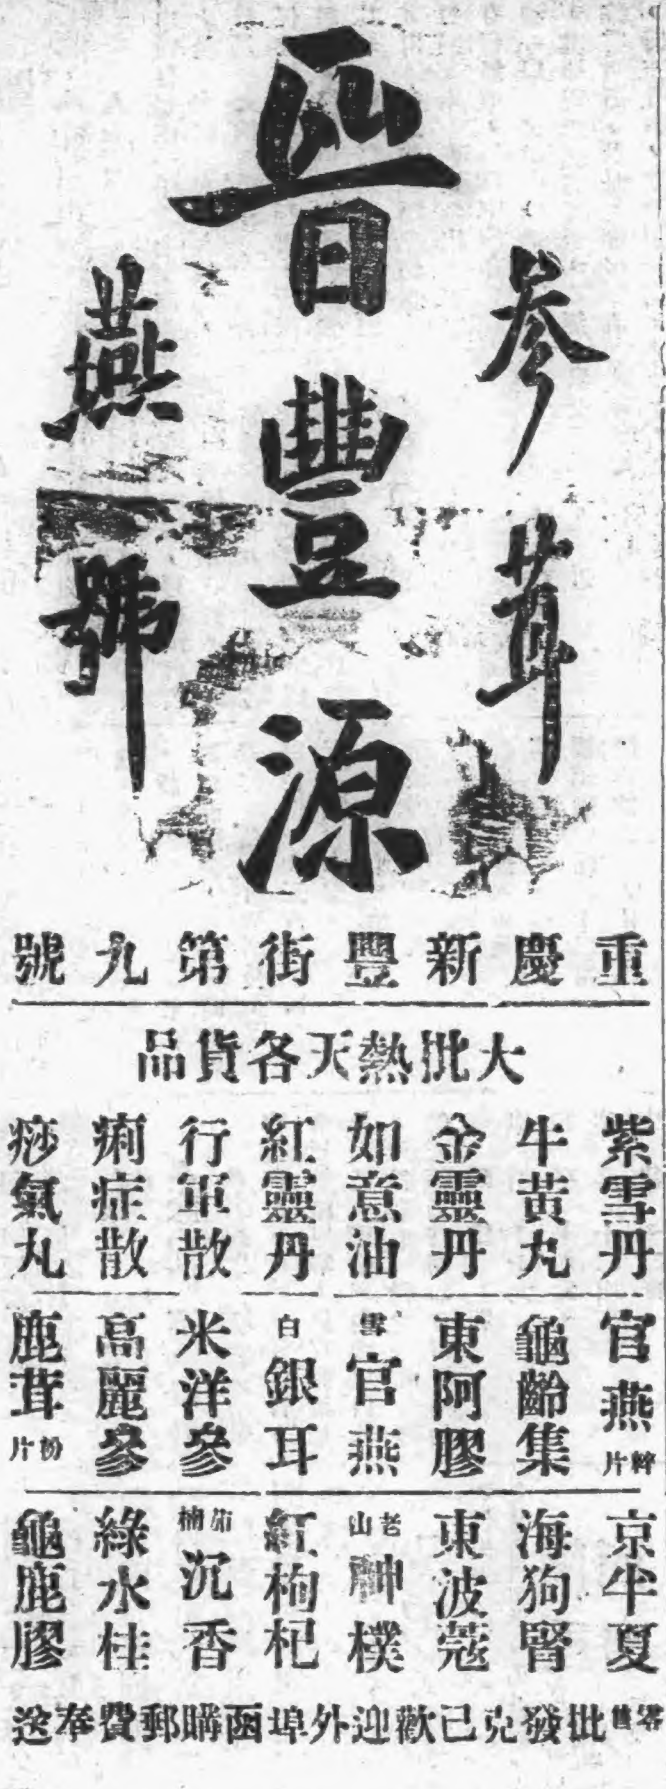 參茸
晉豐源
燕號
重慶新豐街第九號
大批熱天各貨品
紫雪丹
牛黃丸
金靈丹
如意油
紅靈丹
行軍散
痢症散
痧氣丸
官燕片
龜齡集
東阿膠
雪官燕
白銀耳
米洋參
高麗參
鹿茸粉片
京半夏
海狗腎
東波蔻
老山紳樸
紅枸杞
茄楠沉香
綠水桂
龜鹿膠
零售批發克己歡迎外埠函購郵費奉送